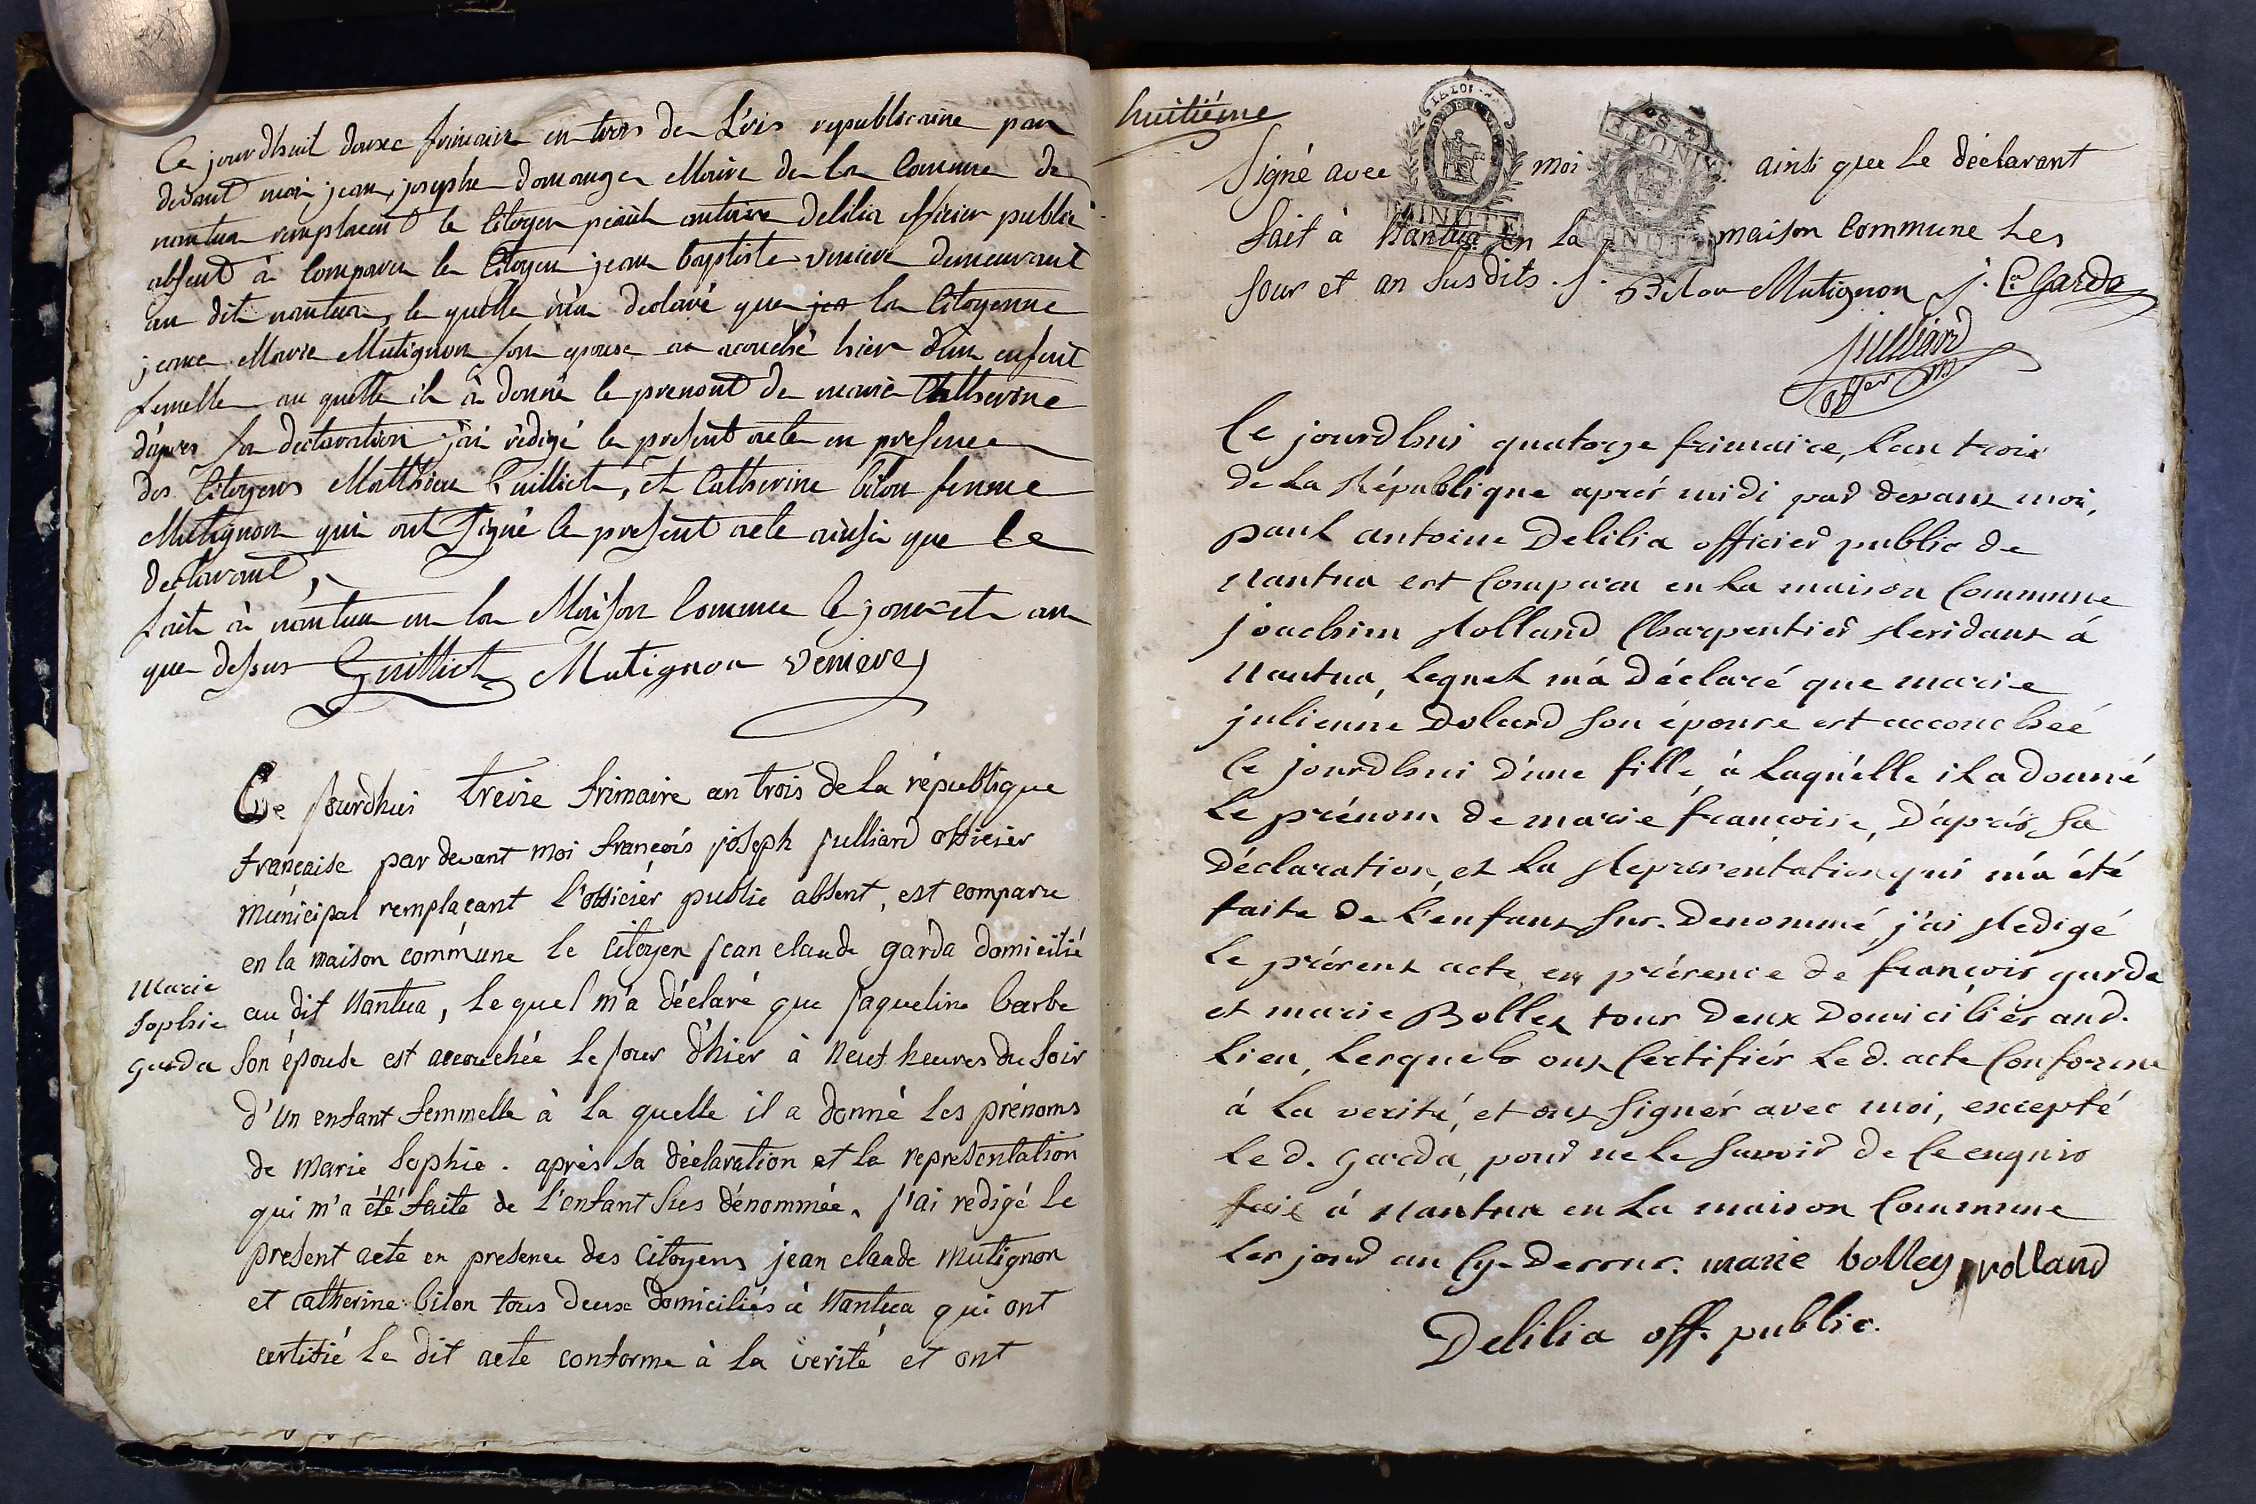 Ce jourdhuit douze frimaire en trois de L'éris republicaine par
devant moi jean, josephe domange Maire de la Comune de
nantua remplacent le Citoyen antoine Delilia officier public
absent à Comparu le Citoyen jean baptiste veniere demeurant
au dit nantua, le quelle m'a declaré que la Citoyenne
jeane Marie Mutignon son epouse a acouché hier d'un enfent
femelle au quelle il à donné le prenont de marie Catherine
d'apres sa declaration j'ai rédigé le present acte en presence
des Citoyens Matthieu Guilliot, et Catherine bilon femme
Mutignon qui ont signé le present acte ainsi que le
declarant,
fait à nantua en la Maison Comune le jour et an
que dessus Guilliot Mutignon veniere
Ce jourdhui treize frimaire an trois de la république
française par devant moi françois joseph julliard officier
municipal remplaçant l'officier public absent, est comparu
en la maison commune le citoyen jean claude garda domicilié
Marie
Sophie
garda
au dit Nantua, lequel m'a déclaré que jaqueline barbe
Son épouse est accouchée le jour d'hier à neuf heures du soir
d'un enfant femmelle à la quelle il a donné les prénoms
de marie Sophie. après sa déclaration et la representation
qui m'a été faite de l'enfant sus dénommée, j'ai rédigé le
present acte en presence des citoyens jean claude mutignon
et catherine bilon tous deux domiciliés à Nantua qui ont
certifié le dit acte conforme à la verité et ont
huitiéme
Signé avec moi ainsi que le déclarant
fait à Nantua en la maison commune les
jour et an susdits. Bilon Mutignon j. C. Garda
MINUTE
julliard
offer m
Ce jourdhui quatorze frimaire, l'an trois
de La République aprés midi pard devant moi,
paul antoine Delilia officier public de
Nantua est Comparu en La maison Commune
joachim Rolland Charpentier Residant á
Nantua, Lequel m'á Déclaré que marie
julienne Dolard son épouse est accouchéé
Ce jourdhui d'une fille á Laquélle il a donné
Le prénom de marie françoise, D'aprés Sa
Déclaration, et La Représentation qui m'á été
faite De L'enfant Sus. Denommé, j'ai Redigé
Le présent acte, en présence de françois garda
et marie Bolley tous Deux Domiciliés aud.
Lieu, Lesquels ont Certifiés Le d. acte Conforme
á La verité, et ont Signér avec moi, excepté
Le d. Garda, pour ne Le Savoir de Ce enquis
fait á Nantua en La maison Commune
Les jour an Cy-Dessus. marie bolley rolland
Delilia off. public.